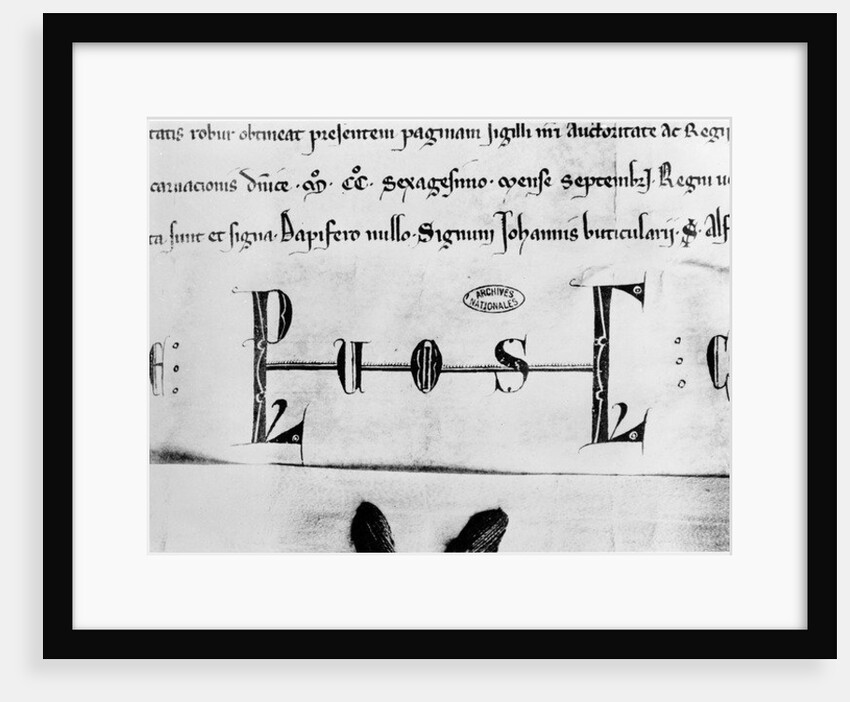 tatis robur obtineat presentem paginam sigilli nri Auctoritate Ac Regii
carnacionis dnice · Mº · CCº · sexagesimo · mense septembrj · Regni u
ta sunt et signa · Dapifero nullo · Signum Johannis buticularij · S · Alf
ARCHIVES
NATIONALES
L U O S